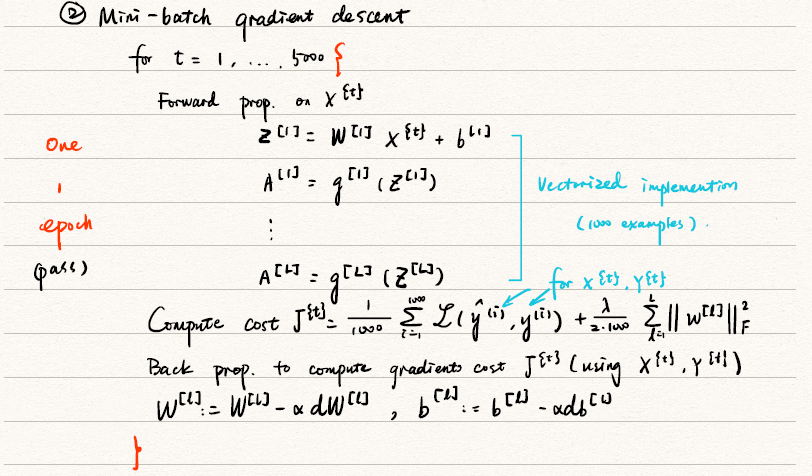 ② Mini-batch gradient descent
for t = 1, .... 5000 {
Forward prop. on X^{t}
Z^[1] = W^[1] X^{t} + b^[1]
One
A^[1] = g^[1] (Z^[1])
Vectorized implemention
1
epoch
(1000 examples).
⋮
(pass)
A^[L] = g^[L] (Z^[L])
for X^{t}, Y^{t}
Compute cost J^{t} = 1/1000 ∑_{i=1}^{1000} L(ŷ^(i), y^(i)) + λ/2·1000 ∑_{l=1}^{L} ||W^[l]||_F^2
Back prop. to compute gradients cost J^{t} (using X^{t}, Y^{t})
W^[l] := W^[l] - αdW^[l], b^[l] := b^[l] - αdb^[l]
}